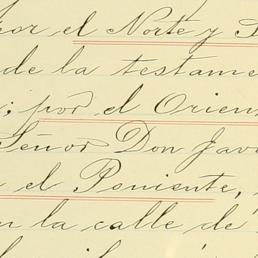 por el Norte y
de la testame
; por el Orien
Señor Don Javi
el Poniente,
la calle de